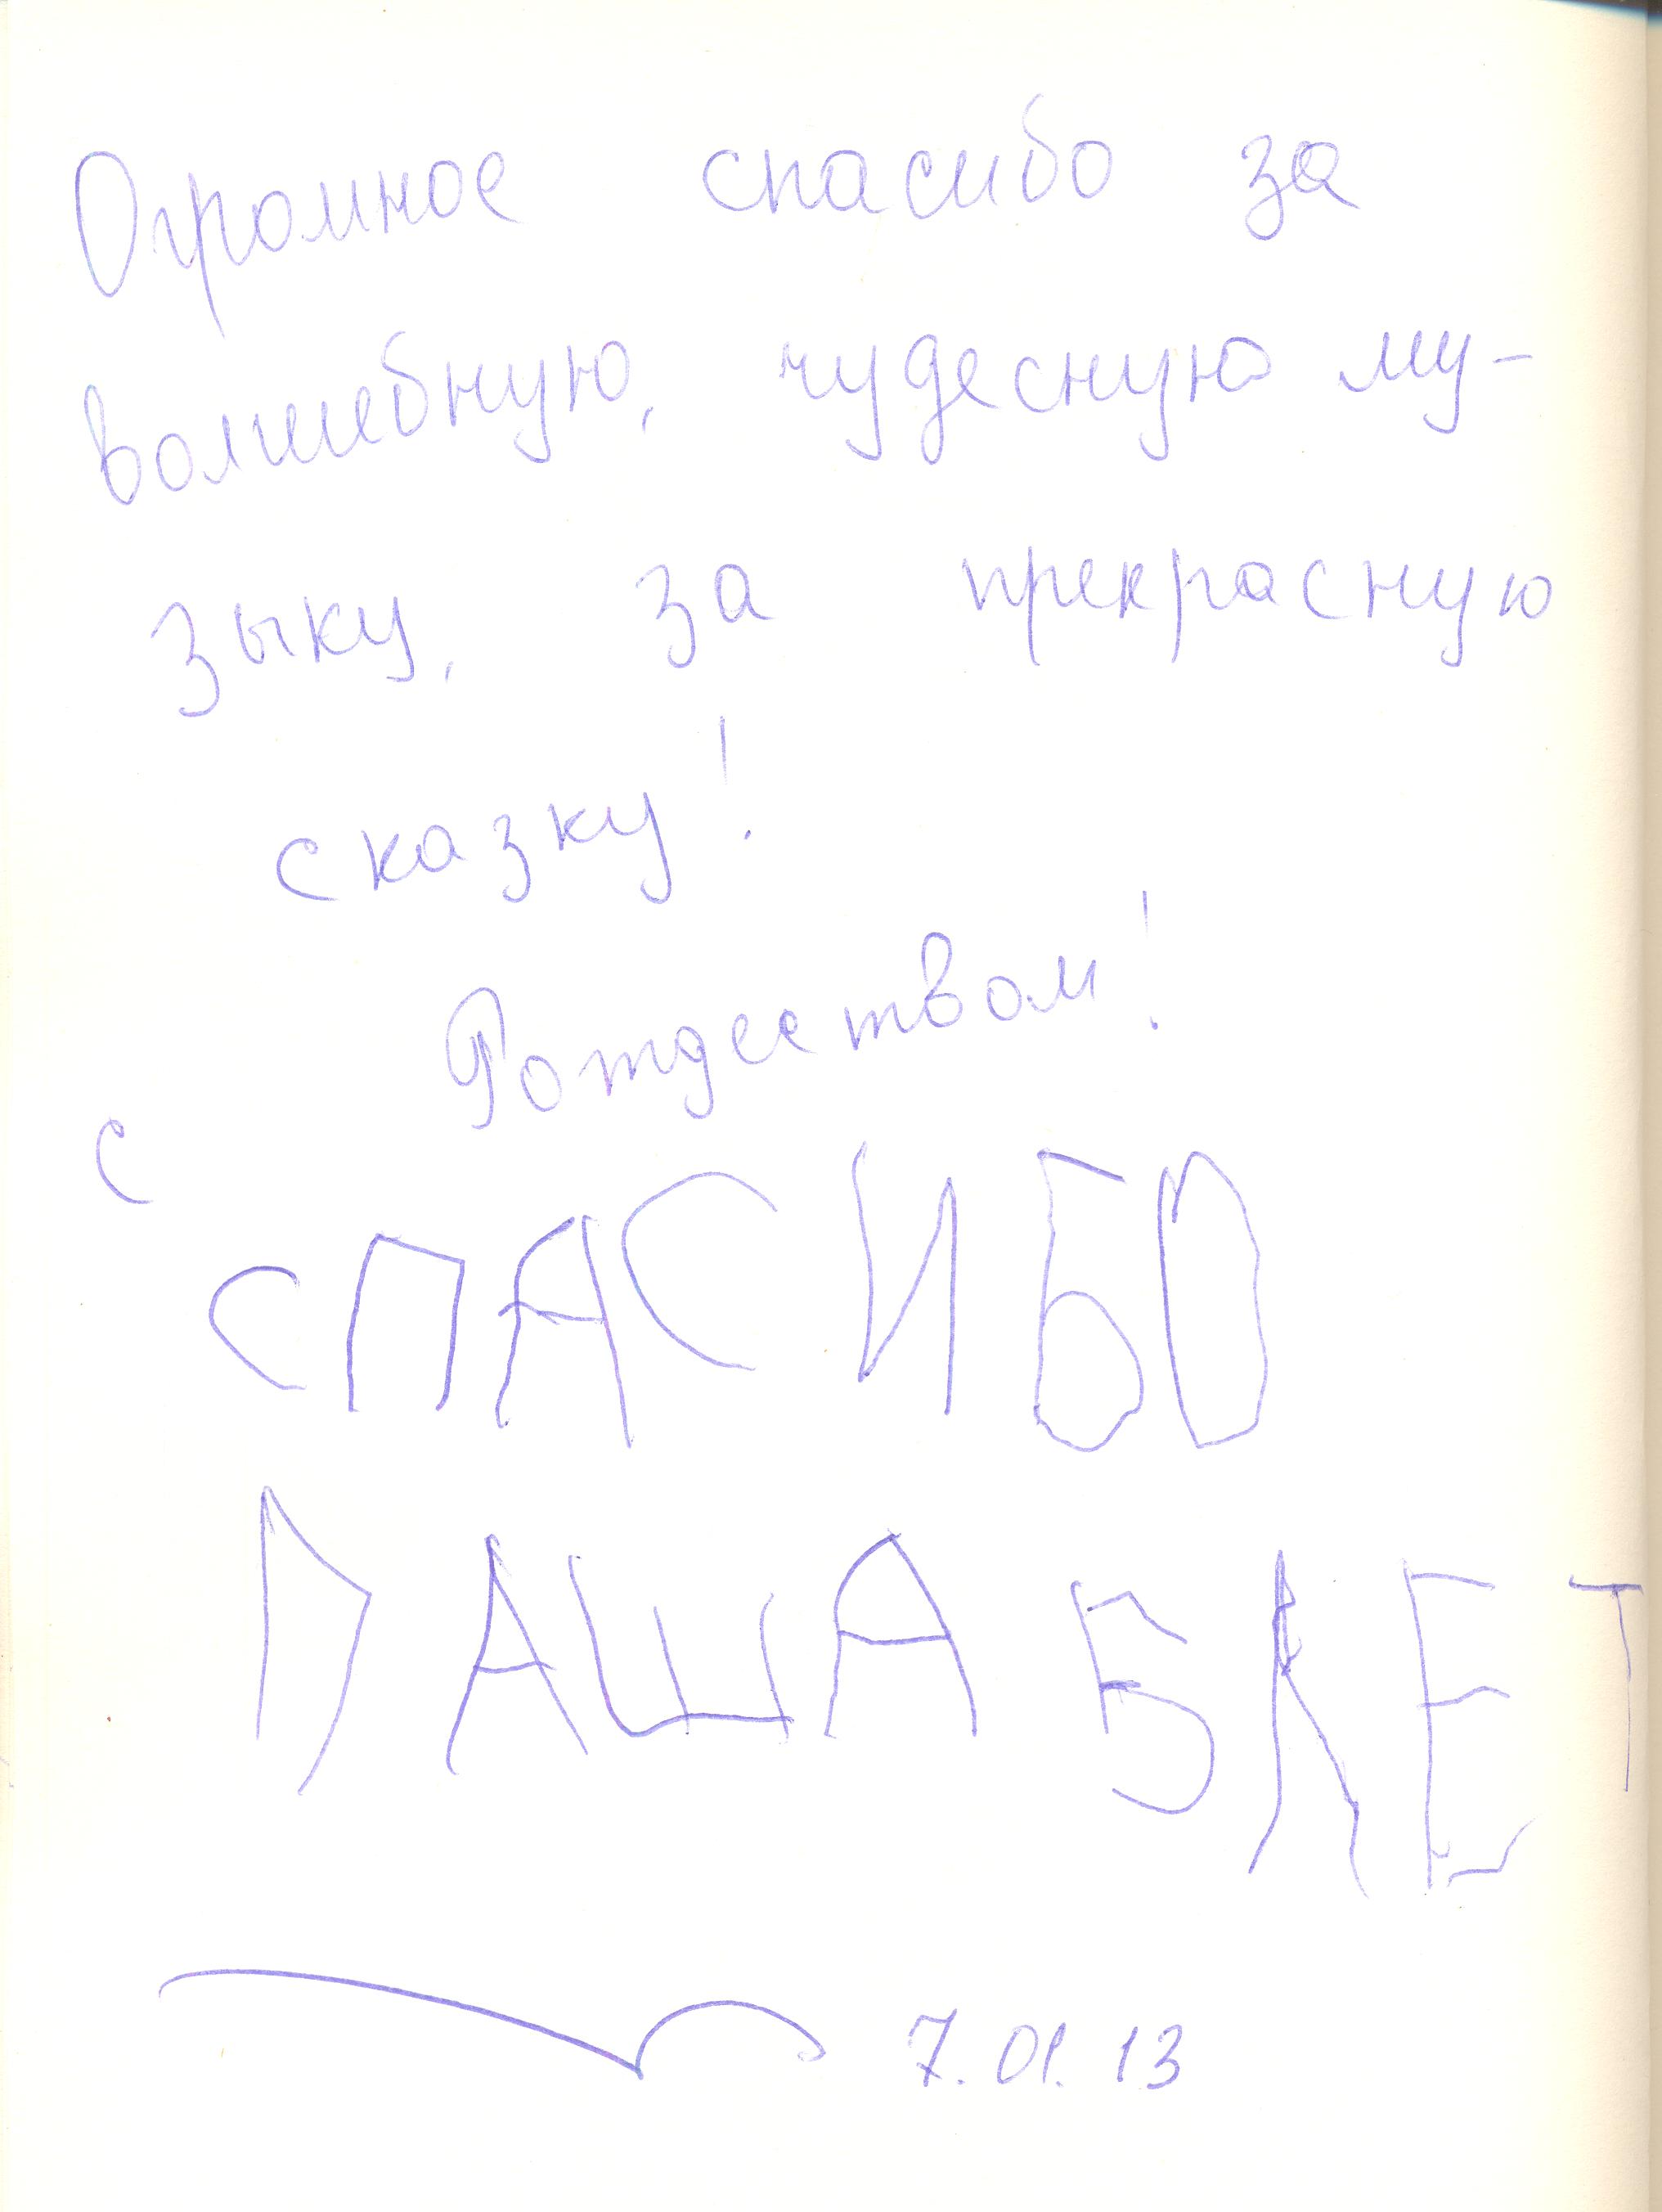 Огромное спасибо за
волшебную, чудесную му-
зыку, за прекрасную
сказку!
С Рождеством!
СПАСИБО
ПАША 5 ЛЕТ
7.01.13